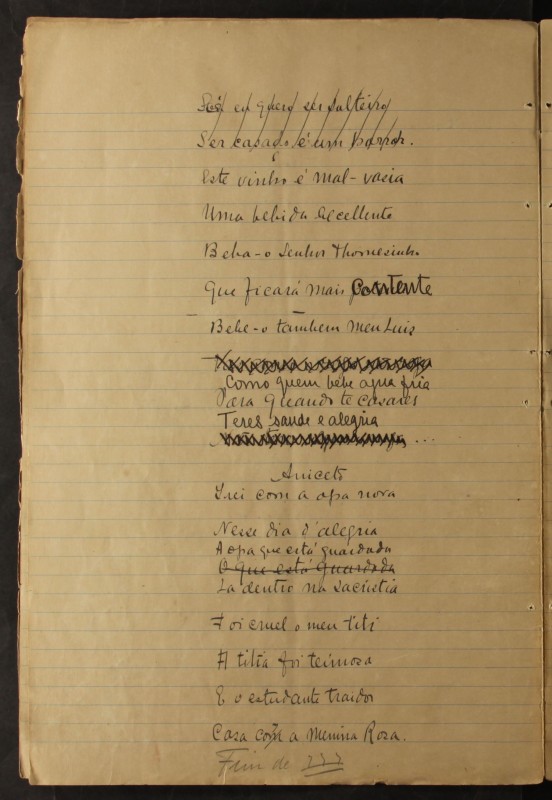 Só eu quero ser solteiro
Ser casado é um horror.
Este vinho é mal-vasia
Uma bebida excellente
Beba-o Senhor Thomesinho
Que ficará mais contente
Bebe-o tambem meu Luiz
Como quem bebe agua fria
Para quando te casares
Teres saude e alegria
...
Aniceto
Irei com a opa nova
Nesse dia d'alegria
A opa que está guardada
O que está guardada
Lá dentro na sacristia
Foi cruel o meu titi
A titia foi teimosa
E o estudante traidor
Casa com a Menina Rosa.
Fim de